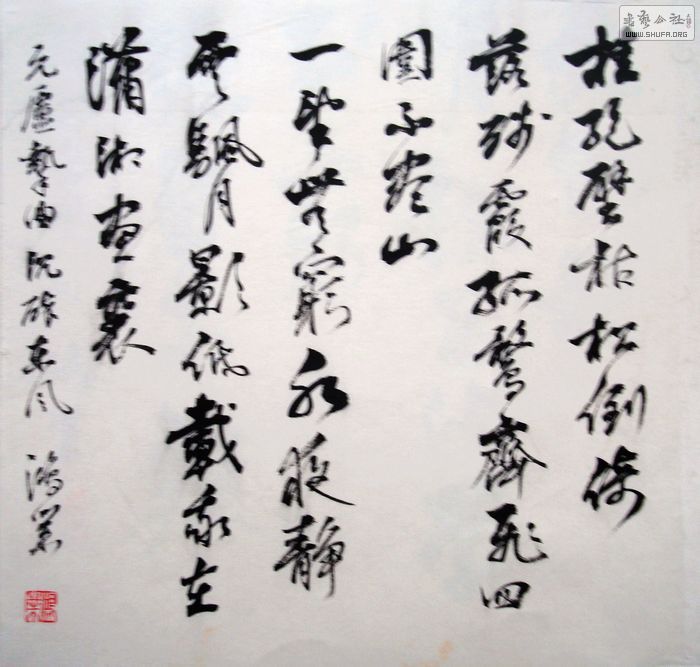 書藝公社
WWW.SHUFA.ORG
挂絕壁枯松倒倚
落殘霞孤鶩齊飛四
圍不盡山
一望無窮水夜靜
雲颿月影低載我在
瀟湘畫裏
元盧摯曲沉醉東風 鴻業